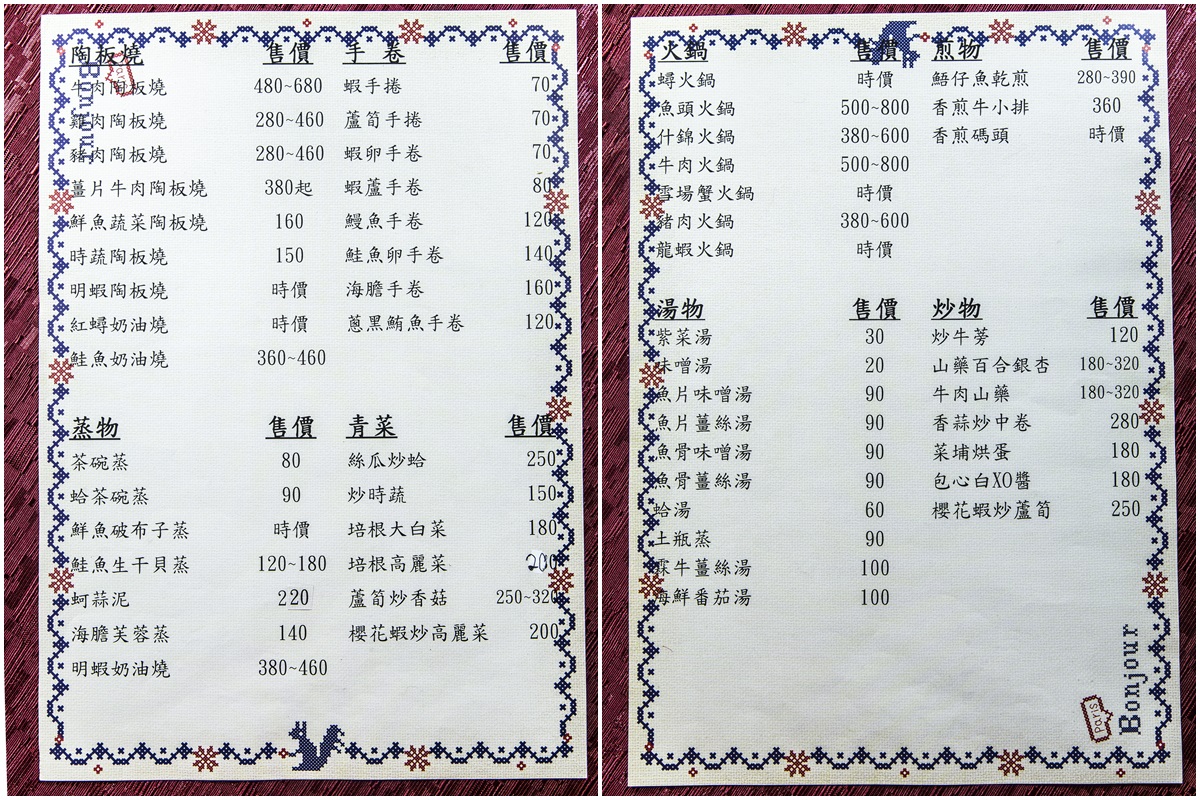 陶板燒 售價 手卷 售價
牛肉陶板燒 480~680 蝦手捲 70
雞肉陶板燒 280~460 蘆筍手捲 70
豬肉陶板燒 280~460 蝦卵手卷 70
薑片牛肉陶板燒 380起 蝦蘆手卷 80
鮮魚蔬菜陶板燒 160 鰻魚手卷 120
時蔬陶板燒 150 鮭魚卵手卷 140
明蝦陶板燒 時價 海膽手卷 160
紅蟳奶油燒 時價 蔥黑鮪魚手卷 120
鮭魚奶油燒 360~460
蒸物 售價 青菜 售價
茶碗蒸 80 絲瓜炒蛤 250
蛤茶碗蒸 90 炒時蔬 150
鮮魚破布子蒸 時價 培根大白菜 180
鮭魚生干貝蒸 120~180 培根高麗菜 200
蚵蒜泥 220 蘆筍炒香菇 250~320
海膽芙蓉蒸 140 櫻花蝦炒高麗菜 200
明蝦奶油燒 380~460
Bonjour
Paris
火鍋 售價 煎物 售價
蟳火鍋 時價 鯃仔魚乾煎 280~390
魚頭火鍋 500~800 香煎牛小排 360
什錦火鍋 380~600 香煎碼頭 時價
牛肉火鍋 500~800
雪場蟹火鍋 時價
豬肉火鍋 380~600
龍蝦火鍋 時價
湯物 售價 炒物 售價
紫菜湯 30 炒牛蒡 120
味噌湯 20 山藥百合銀杏 180~320
魚片味噌湯 90 牛肉山藥 180~320
魚片薑絲湯 90 香蒜炒中卷 280
魚骨味噌湯 90 菜埔烘蛋 180
魚骨薑絲湯 90 包心白XO醬 180
蛤湯 60 櫻花蝦炒蘆筍 250
土瓶蒸 90
霖牛薑絲湯 100
海鮮番茄湯 100
Bonjour
Paris